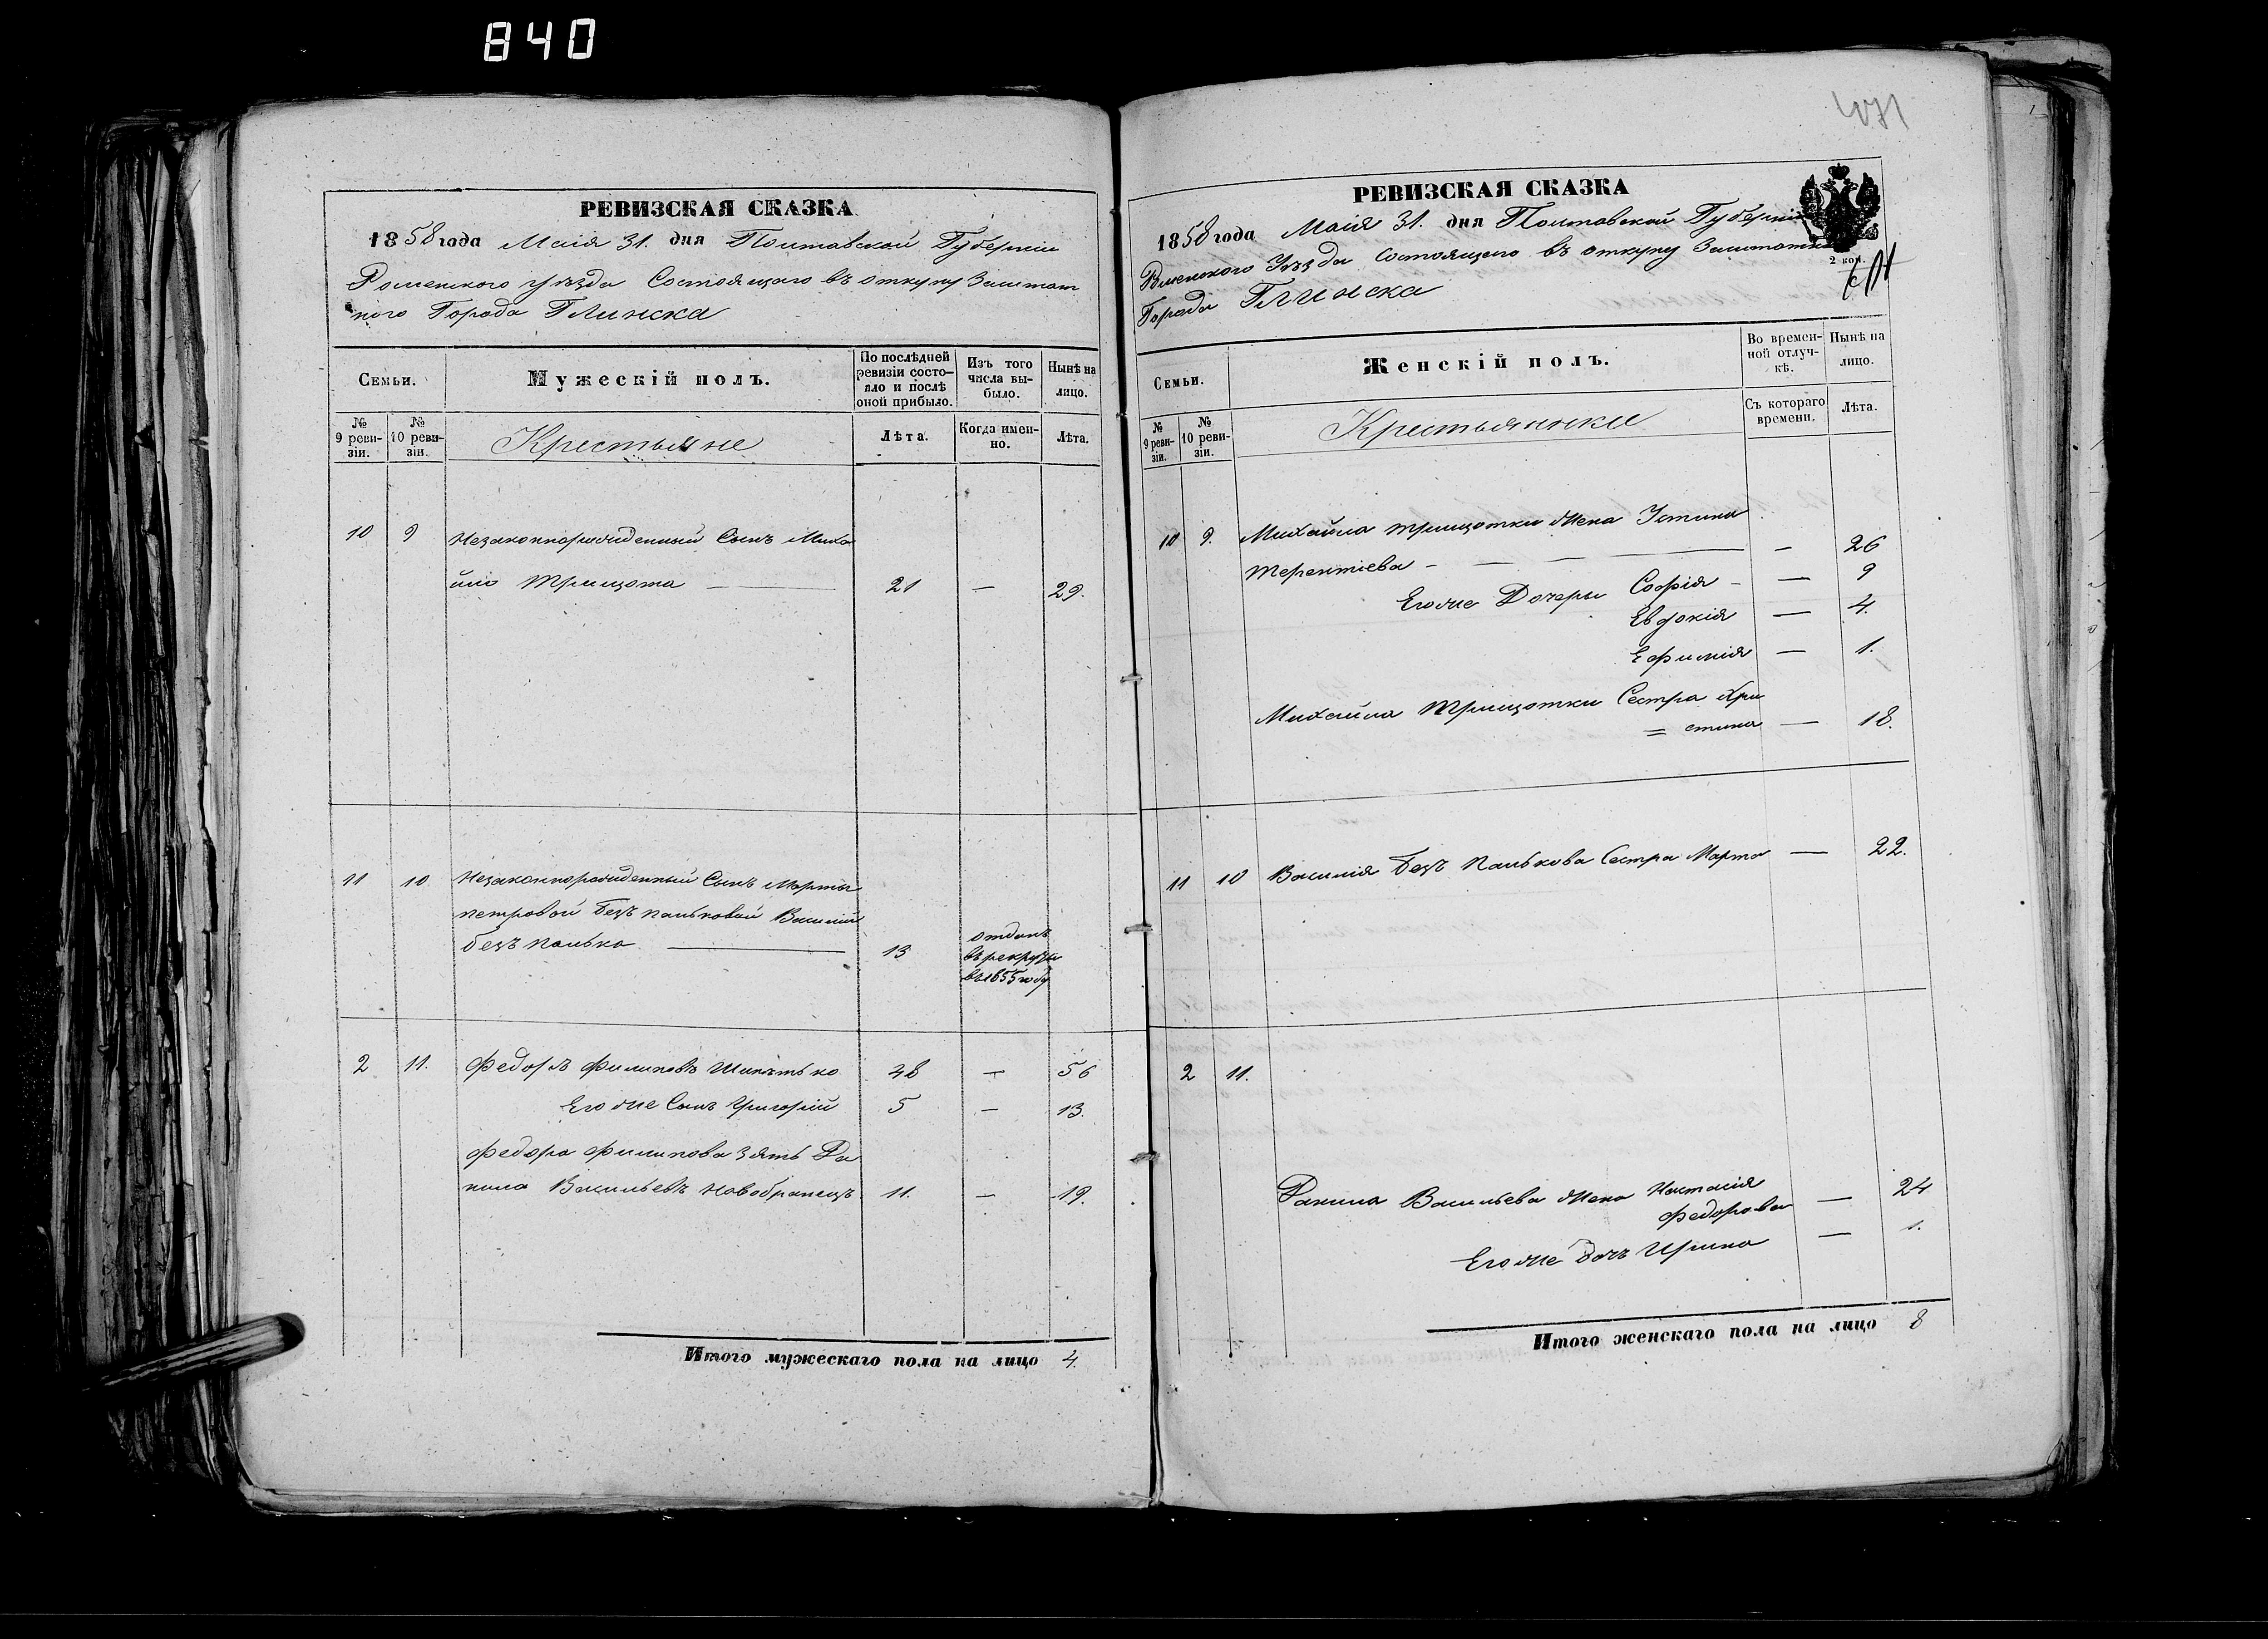 840
РЕВИЗСКАЯ СКАЗКА
1858 года Маія 31. дня Полтавской Губерніи
Роменского уѣзда Состоящаго въ откупу Заштат
ного Города Глинска
Семьи.
Мужескій полъ.
По послѣдней ревизіи состояло и послѣ оной прибыло.
Изъ того числа выбыло.
Нынѣ на лицо.
№ 9 ревизіи.
№ 10 ревизіи.
Крестьяне
Лѣта.
Когда именно.
Лѣта.
10 9 Незаконнорожденный Сынъ Миха
йло Трищота — 21 — 29.
11 10 Незаконнорожденный Сынъ Марты
петровой Безъ пальковой Василій
безъ палько — 13 отданъ
въ рекруты
въ 1855 году
2 11. Федоръ Филиповъ 48 — 56
Его же Сынъ Григорій 5 — 13.
Федора Филипова зять Да
нила Васильевъ Новобранецъ 11. — 19.
Итого мужескаго пола на лицо 4.
РЕВИЗСКАЯ СКАЗКА
1858 года Маія 31. дня Полтавской Губерніи
2 коп.
Уѣзда Состоящего въ откупу Заштатного
Города Глинска
Семьи.
Женскій полъ.
Во временной отлучкѣ.
Нынѣ на лицо.
№ 9 ревизіи.
№ 10 ревизіи.
Крестьянки
Съ котораго времени.
Лѣта.
10 9. Михайла Трищотки жена Устина
Терентіева — — — — 26
Его же Дочери Софія — — 9
Евдокія — 4.
Ефимія — 1.
Михайла Трищотки Сестра Хри
= стина — 18.
11 10 Василія Безъ Палькова Сестра Марта — 22.
2 11.
Данила Васильева жена Настасія
Федорова — 24
Его же дочь Ирина — 1.
Итого женскаго пола на лицо 8